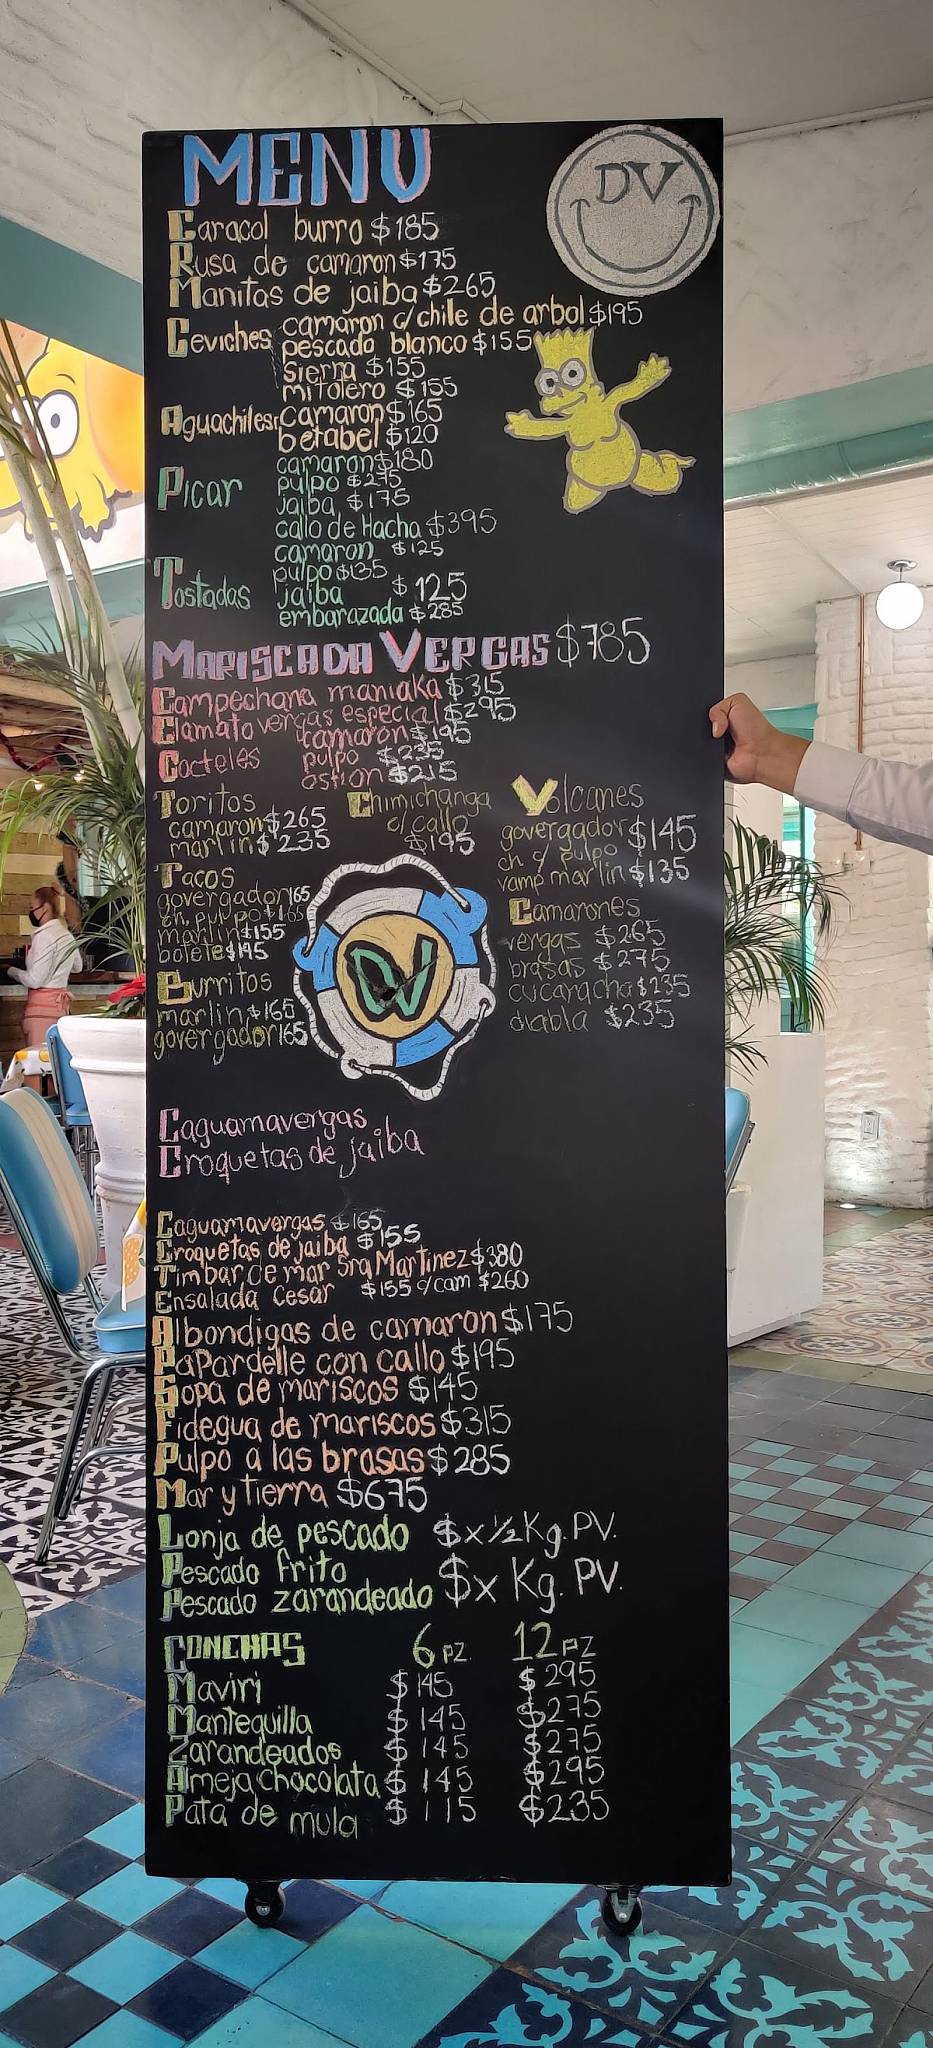 MENU
DV
Caracol burro $185
Rusa de camaron $175
Manitas de jaiba $265
Ceviches camaron c/chile de arbol $195
pescado blanco $155
sierra $155
mitolero $155
Aguachiles camaron $165
betabel $120
Picar camaron $180
pulpo $275
jaiba $175
callo de Hacha $395
Tostadas camaron $125
pulpo $135
jaiba $125
embarazada $285
MARISCADA VERGAS $785
Campechana maniaka $315
Clamato vergas especial $295
Cocteles camaron $195
pulpo $235
ostion $215
Toritos
camaron $265
marlin $235
Chimichanga
c/ callo
$195
Volcanes
govergador $145
ch c/ pulpo
vamp marlin $135
Tacos
govergador 165
ch. pulpo $165
marlin $155
bolete $145
Burritos
marlin $165
govergador 165
Camarones
vergas $265
brasas $275
cucaracha $235
diabla $235
DV
Caguamavergas
Croquetas de jaiba
Caguamavergas $165
Croquetas de jaiba $155
Timbar de mar Sra Martinez $380
Ensalada Cesar $155 c/cam $260
Albondigas de camaron $175
PaPardelle con callo $195
Sopa de mariscos $145
Fidegua de mariscos $315
Pulpo a las brasas $285
Mar y tierra $675
Lonja de pescado $x 1/2 Kg. PV.
Pescado frito
Pescado zarandeado $x Kg. PV.
CONCHAS 6 PZ 12 PZ
Maviri $145 $295
Mantequilla $145 $275
Zarandeados $145 $275
Ameja Chocolata $145 $295
Pata de mula $115 $235